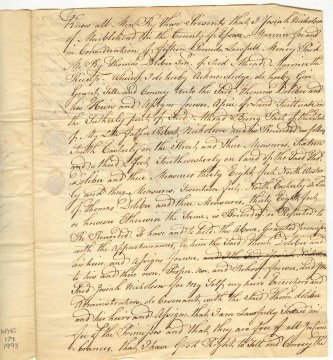 Know all Men By these Presents that I Josiah Nickolson
of Marblehead in the County of Essex Mariner for and
in Consideration of Fifteen Pounds Lawfull Money Paid
Me By Thomas Dolibor Jun of said Marblehead Mariner the
Receipt Whereof I do hereby Acknowledge do hereby Give
Grant Sell and Convey Unto the said Thomas Dolibor and
his Heirs and Assigns forever a Piece of Land Scituate in
the Easterly part of said and Being Part of the Land
of My Father Robert Nickolson and is Bounded as follows
North Easterly on the Street and there Measures Sixteen
and a Half feet, Southwesterly on Land of the said Thos
Dolibor and there Measures thirty Eight feet, North
and there Measures Seventeen feet, North Easterly on Land
of Thomas Dolibor and there Measures thirty Eight feet
or however Otherwise the same is Bounded or Reputed to
Be Bounded. To have and to Hold the above Granted Premises
with the Appurtenances, to him the said Thomas Dolibor and
his heirs, and Assigns forever,
to his and their own Proper Use and Behoof forever, and I the
Said Josiah Nickolson for my Self, my heirs Executors and
Administrators, do Covenant with the said Thomas Dolibor
and his heirs and Assigns, that I am Lawfully Seized in
fee of the Premises and that they are free of all Incum
brances, that I have good Right to Sell and Convey the
MHG
171
1993